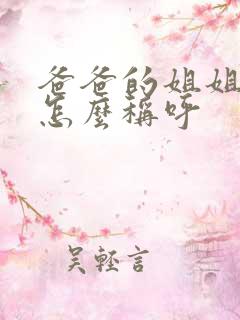 爸爸的姐姐
怎麼稱呼
吳輕言